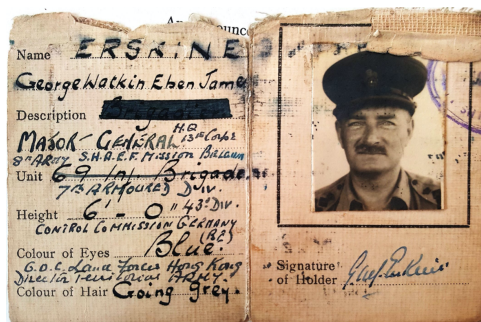 Announce
Name ERSKINE
George Watkin Eben Jame
Description
MAJOR-GENERAL H.Q 13th Corps
8th ARMY S.H.A.E.F. Mission Belgium
Unit 69 Inf. Brigade
7th ARMOURED DIV.
Height 6' - 0" 43rd DIV.
CONTROL COMMISSION GERMANY
(BE)
Colour of Eyes Blue.
G.O.C. Land Forces Hong Kong
Director Territorial ARMY
Colour of Hair Going grey.
Signature
of Holder